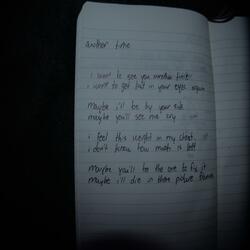 another time
i want to see you another time
i want to get lost in your eyes again
maybe i'll be by your side
maybe you'll see me cry
i feel this weight in my chest
i don't know how much is left
maybe you'll be the one to fix it
maybe i'll die in these picture frames